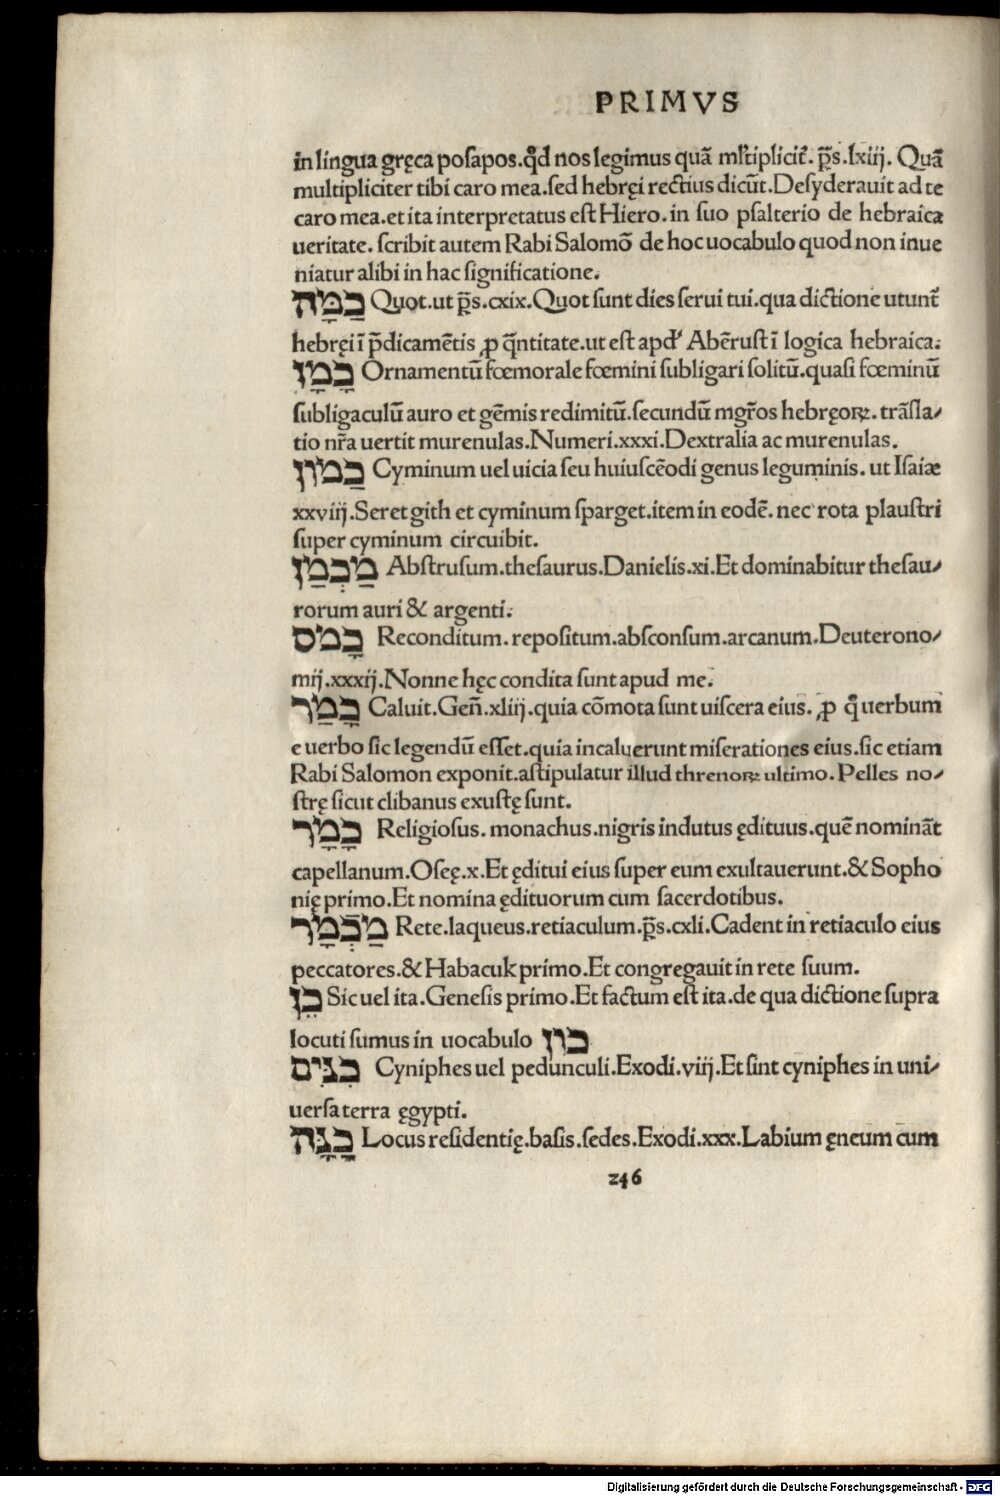 PRIMVS
in lingua gręca posapos.qd̄ nos legimus quā ml̄tiplicit̄. p̄s.lxiij. Quā
multipliciter tibi caro mea.sed hebręi rectius dicūt.Desyderauit ad te
caro mea.et ita interpretatus est Hiero.in suo psalterio de hebraica
ueritate. scribit autem Rabi Salomō de hoc uocabulo quod non inue
niatur alibi in hac significatione.
כַּמָּה Quot.ut p̄s.cxix.Quot sunt dies serui tui.qua dictione utunt̄
hebręi ī p̄dicamētis ꝓ q̄ntitate.ut est apd' Abērust ī logica hebraica.
כָּמָז Ornamentū fœmorale fœmini subligari solitū.quasi fœminū
subligaculū auro et gēmis redimitū.secundū mgr̄os hebręoꝝ.trāsla/
tio nr̄a uertit murenulas.Numeri.xxxi.Dextralia ac murenulas.
כַּמּוֹן Cyminum uel uicia seu huiuscēodi genus leguminis. ut Isaiæ
xxviij.Seret gith et cyminum sparget.item in eodē. nec rota plaustri
super cyminum circuibit.
מַכְמַן Abstrusum.thesaurus.Danielis.xi.Et dominabitur thesau/
rorum auri & argenti.
כָּמֹס Reconditum. repositum.absconsum.arcanum.Deuterono/
mij.xxxij.Nonne hęc condita sunt apud me.
כָּמַר Caluit.Geñ.xliij.quia cōmota sunt uiscera eius. ꝓ q̄ uerbum
e uerbo sic legendū esset.quia incaluerunt miserationes eius.sic etiam
Rabi Salomon exponit.astipulatur illud threnoꝝ ultimo. Pelles no/
strę sicut clibanus exustę sunt.
כָּמָר Religiosus. monachus.nigris indutus ędituus.quē nomināt
capellanum.Oseę.x.Et ęditui eius super eum exultauerunt.& Sopho
nię primo.Et nomina ędituorum cum sacerdotibus.
מַכְמָר Rete.laqueus.retiaculum.p̄s.cxli.Cadent in retiaculo eius
peccatores.& Habacuk primo.Et congregauit in rete suum.
כֵּן Sic uel ita.Genesis primo.Et factum est ita.de qua dictione supra
locuti sumus in uocabulo כון
כִּנִּים Cyniphes uel pedunculi.Exodi.viij.Et sint cyniphes in uni/
uersa terra ęgypti.
כַּנָּה Locus residentię.basis.sedes.Exodi.xxx.Labium ęneum cum
246
Digitalisierung gefördert durch die Deutsche Forschungsgemeinschaft - DFG